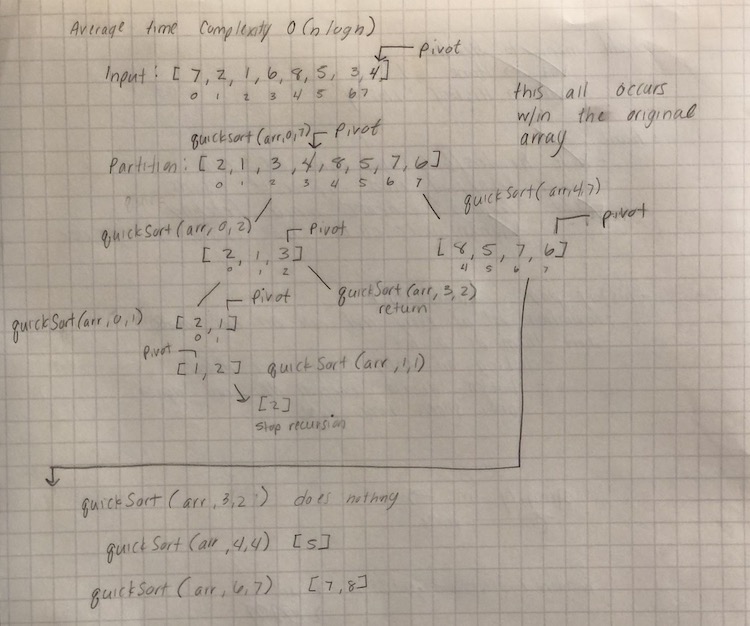 Average time complexity O(n logn)
pivot
Input: [ 7, 2, 1, 6, 8, 5, 3, 4]
0 1 2 3 4 5 6 7
this all occurs
w/in the original
array
quickSort(arr,0,7) Pivot
Partition: [ 2, 1, 3, 4, 8, 5, 7, 6]
0 1 2 3 4 5 6 7
quickSort(arr,4,7)
pivot
quickSort(arr, 0, 2)
Pivot
[ 2, 1, 3]
0 1 2
[ 8, 5, 7, 6]
4 5 6 7
Pivot
quickSort(arr, 3, 2)
return
quickSort(arr, 0, 1)
[ 2, 1]
0 1
pivot
[ 1, 2] quickSort(arr, 1, 1)
[2]
stop recursion
quickSort(arr, 3, 2) does nothng
quickSort(arr, 4,4) [5]
quickSort(arr, 6, 7) [7, 8]